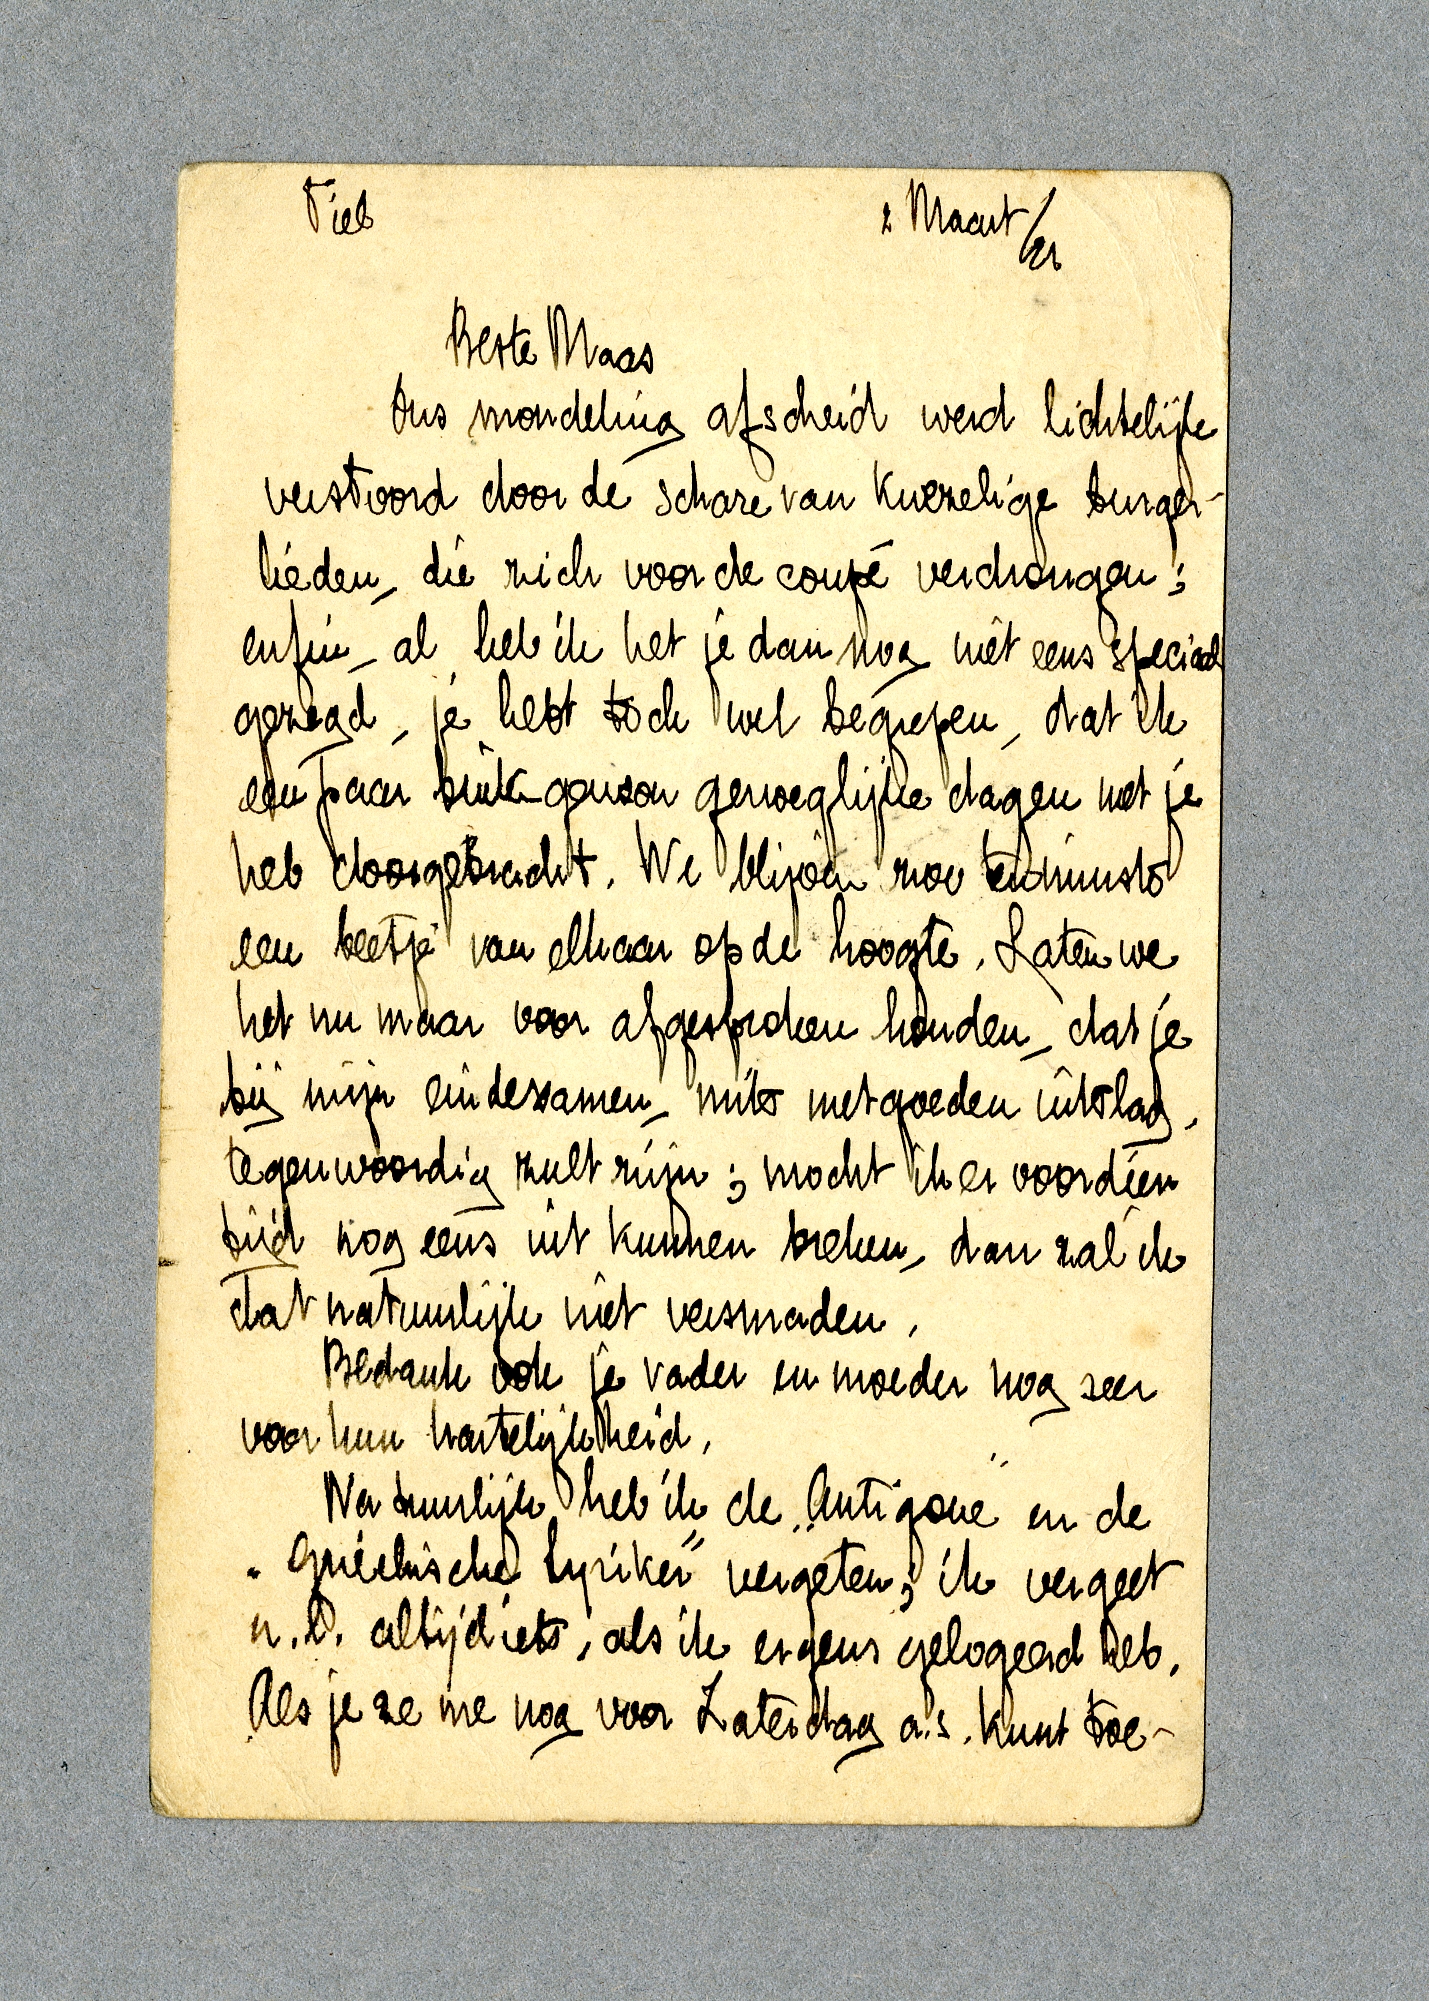 Tiel 2 Maart/21
Beste Maas
Ons mondeling afscheid werd lichtelijk
verstoord door de schare van kwezelige burger-
lieden, die zich voor de coupé verdrongen;
enfin, al heb ik het je dan nog niet eens speciaal
gezegd, je hebt toch wel begrepen, dat ik
een paar genoeglijke dagen met je
heb doorgebracht. We blijven zoo tenminste
een beetje van elkaar op de hoogte. Laten we
het nu maar voor afgesproken houden, dat je
bij mijn eindexamen, mits met goeden uitslag,
tegenwoordig zult zijn; mocht ik er voordien
tijd nog eens uit kunnen breken, dan zal ik
dat natuurlijk niet versmaden.
Bedank ook je vader en moeder nog zeer
voor hun hartelijkheid.
Natuurlijk heb ik de „Antigone" en de
„Griechische Lyriker" vergeten; ik vergeet
n.l. altijd iets, als ik ergens gelogeerd heb.
Als je ze me nog voor Zaterdag a.s. kunt toe-